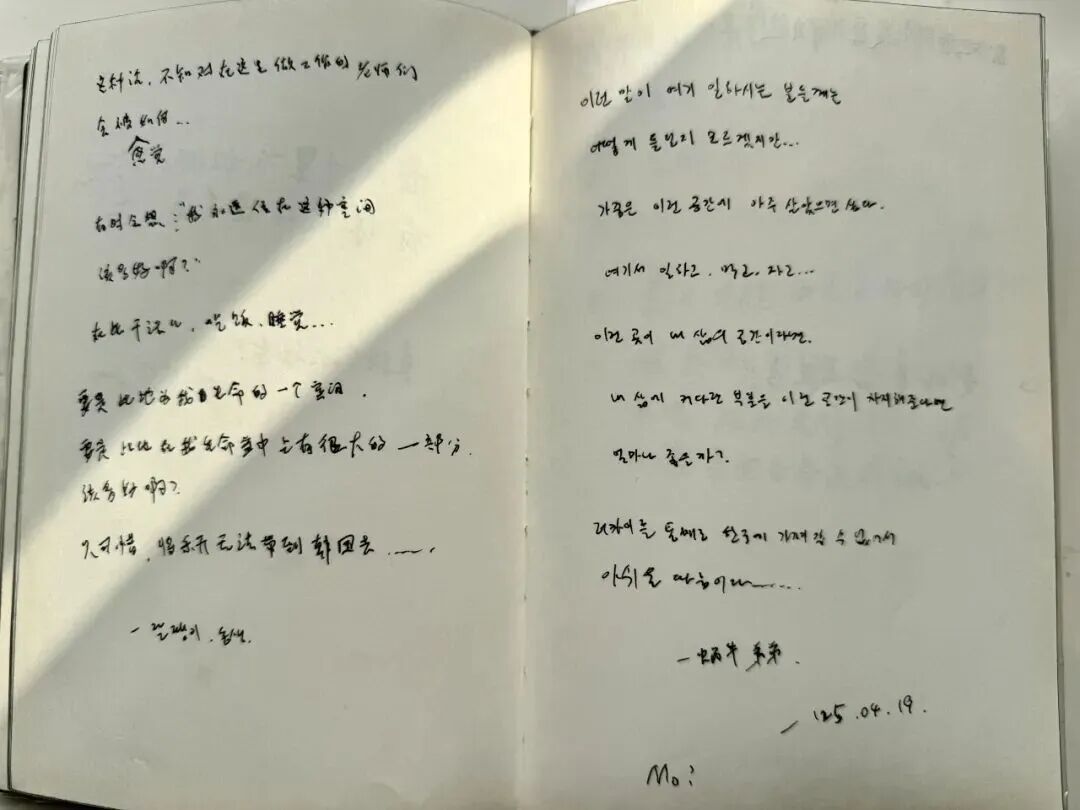 这种话，不知对在这里做工作的老师们
会被如何...
感觉
有时会想："我永远住在这种空间
该多好啊？"
在此干活儿，吃饭、睡觉...
要是此地为我生命的一个空间，
要是此地在我生命当中占有很大的一部分，
该多好啊？
只可惜，将乐开无法带到韩国去......,
- 달팽이 동생.
이런 말이 여기 일하시는 분들께는
어떻게 들릴지 모르겠지만...
가끔은 이런 공간에 아주 살았으면 싶다.
여기서 일하고, 먹고, 자고...
이런 곳이 내 삶의 공간이라면,
내 삶에 커다란 부분을 이런 공간이 차지해준다면
얼마나 좋을까?
통째로 한국에 가져갈 수 없어서
아쉬울 따름이다......
- 蜗牛弟弟.
'25.04.19.
Mo: